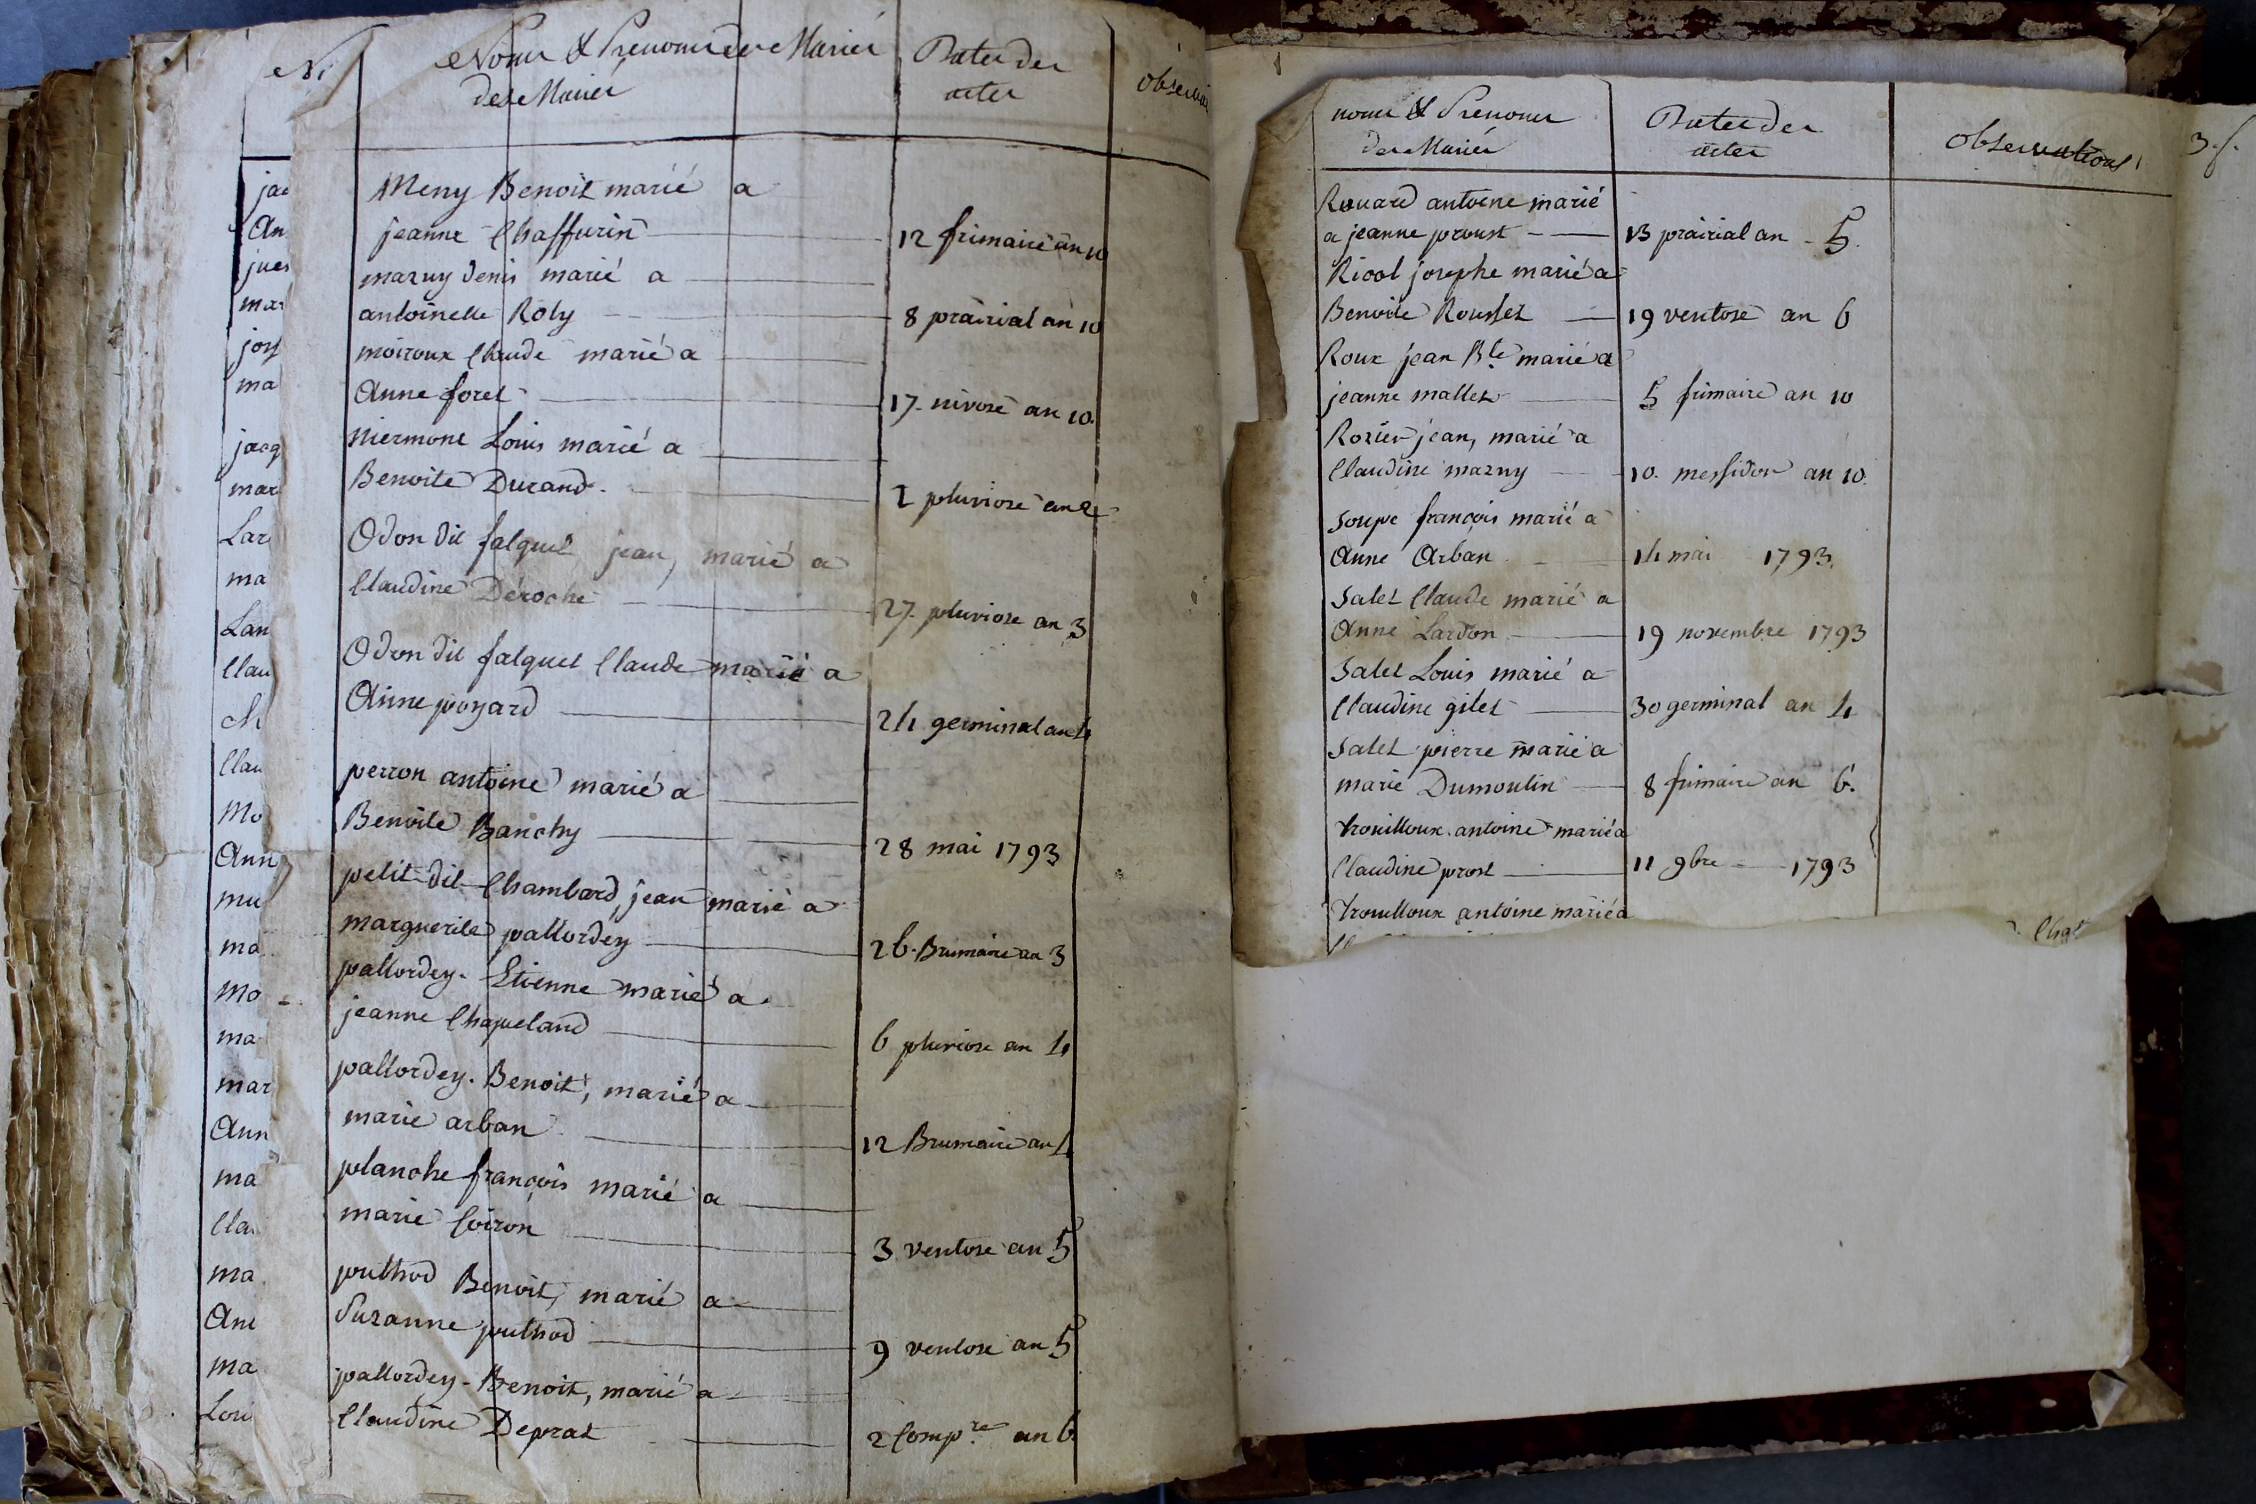 Noms & Prenoms des Mariés
des Mariés
Dates des
actes
jac
An
jues
mar
jos
ma
jacq
mar
Lar
ma
Lan
Clau
Clau
Mo
Ann
mu
ma
Mo
ma
mar
Ann
ma
Cla
ma
An
ma
Loui
Meny Benoit marié a
jeanne Chaffurin 12 frimaire an 10
mazuy denis marié a
antoinette Roty 8 prairial an 10
moiroux Claude marié a
Anne foret 17. nivose an 10.
Niermont Louis marié a
Benoite Durand. 2 pluviose an 2
Odon dit falquet jean, marié a
Claudine Déroche 27. pluviose an 3
Odon dit falquet Claude marié a
Anne poyard 24 germinal an 4
perron antoine marié a
Benoite Banchy 28 mai 1793
petit dit Chambard, jean marié a
marguerite pallordey 26. Brumaire an 3
pallordey. Etienne marié a
jeanne Chapeland 6 pluviose an 4
pallordey. Benoit, marié a
marie arban 12 Brumaire an 4
planche françois marié a
marie Coiron 3 ventose an 5
puthod Benoit, marié a
Suzanne puthod 9 ventose an 5
pallordey - Benoit, marié a
Claudine Deprat 2 Comp.re an 6.
noms & Prenoms
des Mariés
Dates des
actes
Observations
3.f.
Rouard antoine marié
a jeanne proust 13 prairial an 5.
Rioot josephe marié a
Benoite Rousset 19 ventose an 6
Roux jean Bte marié a
jeanne mallet 5 frimaire an 10
Rozier jean, marié a
Claudine mazuy 10. messidor an 10.
Soupe françois marié a
Anne Arban 14 mai 1793.
Salet Claude marié a
Anne Lardon 19 novembre 1793
Salet Louis marié a
Claudine gilet 30 germinal an 4
Salet pierre marié a
marie Dumoulin 8 frimaire an 6.
trouilloux antoine marié a
Claudine prost 11 9bre 1793
trouilloux antoine marié a